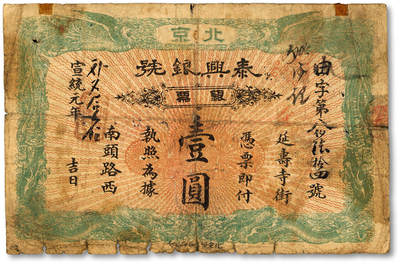 北京
泰興銀號
銀票
字第
拾四號
延壽寺街
憑票即付
壹圓
執照為據
南頭路西
宣統元年
吉日